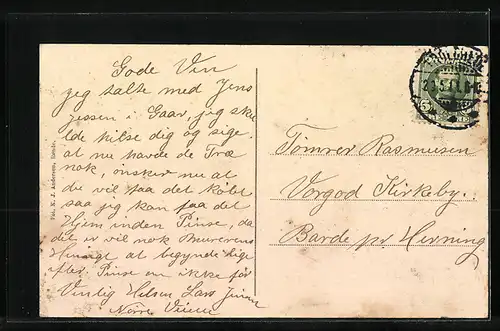 Gode Ven
jeg talte med Jens
Jessen i Gaar, jeg sku
lde hilse dig og sige
at nu havde de Træ
nok, ønsker nu at
du vil faa det købt
saa jeg kan faa det
Hjem inden Pinse, da
det er vil nok Murerens
at begynde lige
efter Pinse om ikke før
Venlig Hilsen Lars Jensen
Nørre
Fot. K. J. Andersen, Ronde.
Tömrer Rasmusen
Vorgod Kirkeby.
Barde pr Herning
5